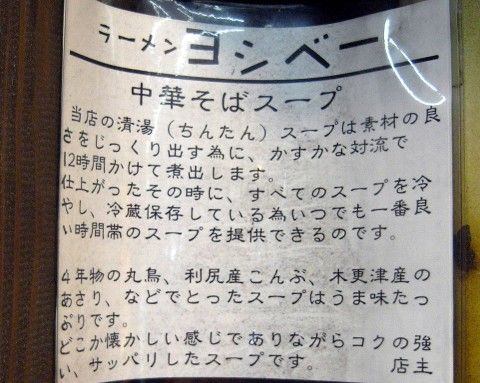 ラーメン ヨシベー
中華そばスープ
当店の清湯(ちんたん)スープは素材の良
さをじっくり出す為に、かすかな対流で
12時間かけて煮出します。
仕上がったその時に、すべてのスープを冷
やし、冷蔵保存している為いつでも一番良
い時間帯のスープを提供できるのです。
4年物の丸鳥、利尻産こんぶ、木更津産の
あさり、などでとったスープはうま味たっ
ぷりです。
どこか懐かしい感じでありながらコクの強
い、サッパリしたスープです。 店主